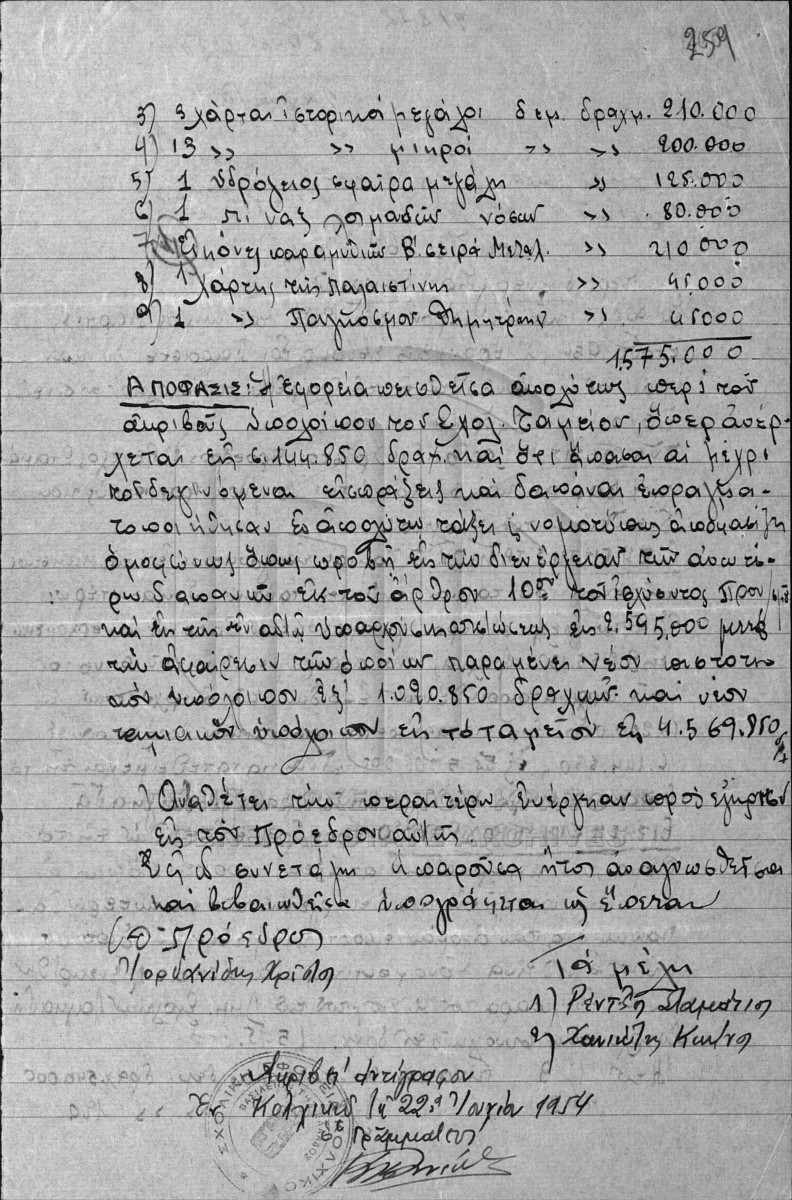 259
3) 3 χάρται ἱστορικοί μεγάλοι δεμ. δραχμ. 210.000
4) 13 >> >> μικροί >> >> 200.000
5) 1 ὑδρόγειος σφαῖρα μεγάλη >> 125.000
6) 1 πίναξ λοιμωδῶν νόσων >> 80.000
7) Εἰκόνες παραμυθιῶν Β' σειρά Μεταλ. >> 210 000
8) 1 Χάρτης τῆς Παλαιστίνης >> 45000
9) 1 >> Παγκόσμιου >> 45000
1.575.000
ΑΠΟΦΑΣΙΣ: Ἡ Ἐφορεία πεισθεῖσα ἀπολύτως περί τοῦ
ἀκριβοῦς ὑπολοίπου τοῦ Σχολ. Ταμείου, ὅπερ ἀνέρ-
χεται εἰς 6.144.850 δραχ. καί ὅτι ἅπασαι αἱ μέχρι
τοῦδε γενόμεναι εἰσπράξεις καί δαπάναι ἐπραγμα-
τοποιήθησαν ἐν ἀπολύτῳ τάξει νομοτύπως ἀποφασίζει
ὁμοφώνως ὅπως προβῇ εἰς τήν διενέργειαν τῶν ἀνωτέ-
ρω δαπανῶν ἐκ τοῦ ἄρθρου 10ου τοῦ ἰσχύοντος Πρου/σμοῦ
καί ἐκ τῆς ἐν αὐτῷ ὑπαρχούσης πιστώσεως ἐκ 2.595.000 μετά
τήν ἀφαίρεσιν τῶν ὁποίων παραμένει νέον πιστωτι
κόν ὑπόλοιπον ἐξ 1.020.850 δραχμῶν καί νέον
ταμιακόν ὑπόλοιπον εἰς τό ταμεῖον ἐκ 4.569.850
Ἀναθέτει τήν περαιτέρω ἐνέργειαν πρός ἔγκρισιν
εἰς τόν Πρόεδρον αὐτῆς.
Ἐφ' ᾧ συνετάγη ἡ παροῦσα ἥτις ἀναγνωσθεῖσα
καί βεβαιωθεῖσα ὑπογράφεται ὡς ἕπεται
Ὁ Πρόεδρος
Ἰορδανίδης Χρῖστος
Τά μέλη
1) Ρέντζη Σταμάτιος
2) Χανιώτης Κων/νος
Ἀκριβές ἀντίγραφον
Ἐν Κολχικῷ τῇ 22ᾳ Ἰουνίου 1954
Γραμματεύς